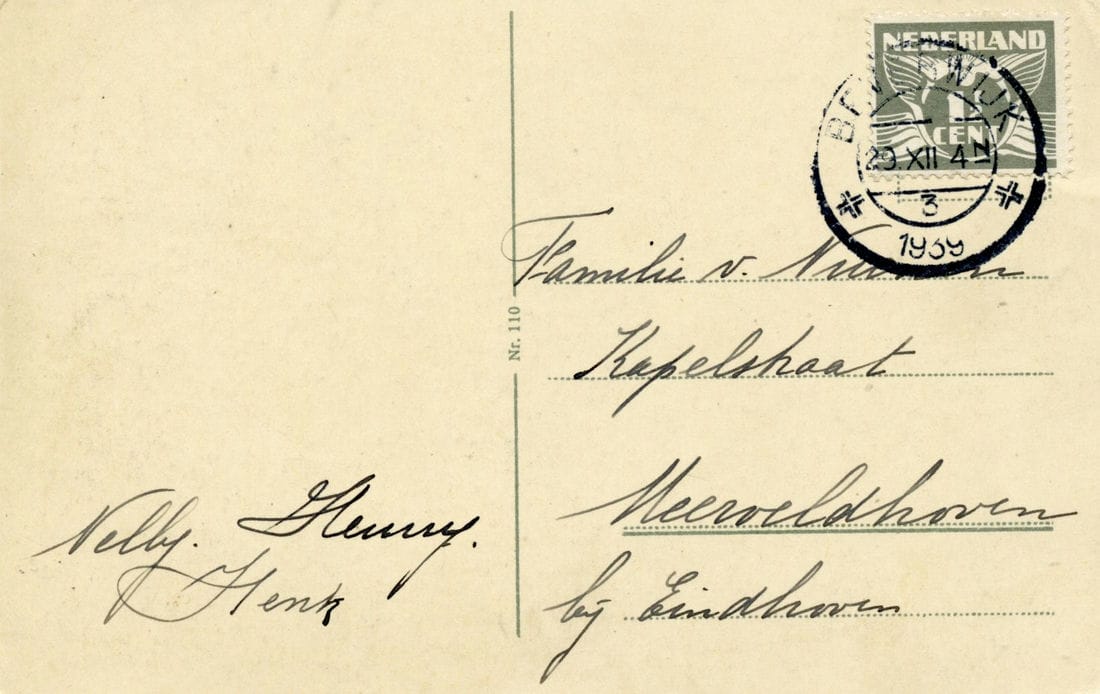 NEDERLAND
1½
CENT
BEVERWIJK
29.XII 4 N
3
1939
Familie v.
Kapelstraat
Meerveldhoven
bij Eindhoven
Nr. 110
Nelly. Henny.
Henk